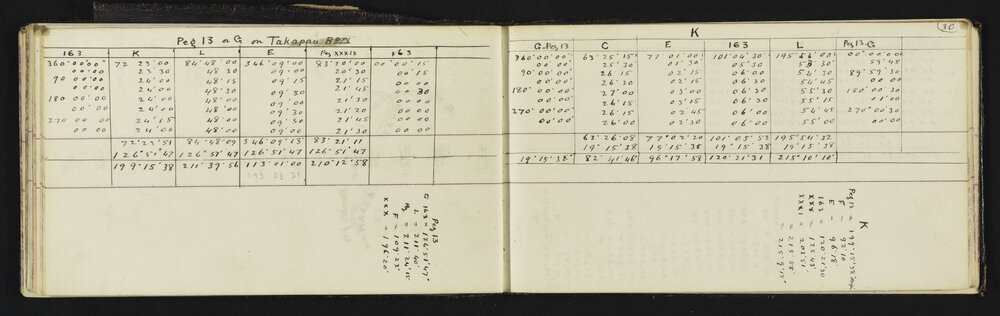 Peg 13 or G on Takapau
163 K L E Peg XXXIX 163
360°00'00" 72 23'00 84°48'00 346 09'00 83°20'00 00°00'15
00'00 23'30 48'30 09'00 20'30 00'15
90 00'00 24'00 48'15 09'15 21'15
00'00 24'00 48'30 09'30 21'45 00 30
180 00'00 24'00 48'00 21'30 00'00
00'00 24'00 48'00 09'00 21'20 00'00
270 00 00 24'15 48'00 09'30 21'45 00'00
00 00 24'00 48'00 09'00 21'30 00'00
72°23'51 84°48'09 346 09'13 83°21'11
126°51'47 126°51'47 126°51'47 126°51'47
199°15'38 211°39'56 113°01'00 210°12'58
193 03 31
Peg 13
G 163 = 126°51'47"
L = 211°40'
= 211°24'15"
F = 109°23'
XXX = 196°20'
30
K
G-Peg 13 C E 163 L Peg 13-G
360°00'00" 63°25'15" 77°01'00" 101°04'30 195°53'00"
00'00" 25'30 01'30 05'30 53'30 59'45
90°00'00" 26'15 02'15 06'00 54'30 89°59'30
00'00" 26'30 02'45 06'30 54'30 00'00
180°00'00" 27'00 03'00 06'30 55'30 180°00'30
00'00" 26'15 03'15 06'00 55'15 01'00
270°00'00" 26'15 02'45 06'00 54'45 270°00'30
00'00" 26'00 02'30 06'00 55'00 00'00
63°26'08 77°02'20 101°05'53 195°54'32
19°15'38 19°15'38 19°15'38 19°15'38
19°15'38" 82°41'46 96°17'58 120°21'31 215°10'10"
K
Peg 13 = 199°15'38"
F = 92°10
E = 96°18'
163 = 120°21'30
XXX = 125°43'
XXXI = 202°51'
= 215°58'
= 215°9'15"